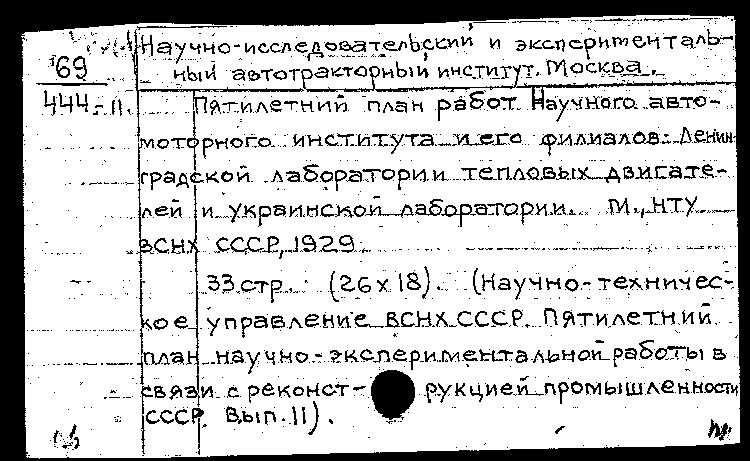 Научно-исследовательский и эксперименталь-
69
ный автотракторный институт. Москва.
444-II. Пятилетний план работ Научного авто-
моторного института и его филиалов: Ленин-
градской лаборатории тепловых двигате-
лей и украинской лаборатории. М., НТУ
ВСНХ СССР, 1929.
33 стр. (26х18). (Научно-техничес-
кое управление ВСНХ СССР. Пятилетний
план научно-экспериментальной работы в
связи с реконст- рукцией промышленности
СССР. Вып. II).